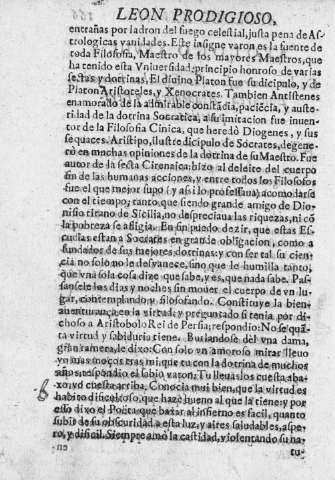 LEON PRODIGIOSO,
entrañas por ladron del fuego celestial, justa pena de As-
trologicas vanidades. Este insigne varon es la fuente de
toda Filosofia, Maestro de los mayores Maestros, que
ha tenido esta Vniuersidad; principio honroso de varias
sectas y dotrinas. El diuino Platon fue su dicipulo, y de
Platon Aristoteles, y Xenocrates. Tambien Antistenes
enamorado de la admirable constãcia, paciẽcia, y auste-
ridad de la dotrina Socratica, a su imitacion fue inuen-
tor de la Filosofia Cinica, que heredò Diogenes, y sus
sequaces. Aristipo, ilustre dicipulo de Socrates, degene-
rò en muchas opiniones de la dotrina de su Maestro. Fue
autor de la secta Cirenaica: hizo al deleite del cuerpo
fin de las humanas acciones, y entre todos los Filosofos
fue el que mejor supo (y assi lo professaua) acomodarse
con el tiempo; tanto, que siendo grande amigo de Dio-
nisio tirano de Sicilia, no despreciaua las riquezas, ni cõ
la pobreza se afligia. En fin puedo dezir, que estas Es-
cuelas estan a Socrates en grande obligacion, como a
fundador de sus mejores dotrinas: y con ser tal su cien-
cia no solo no le desvanece, sino que le humilla tanto,
que vna sola cosa dize que sabe, y es, que nada sabe. Pas-
sansele los dias y noches sin mouer el cuerpo de vn lu-
gar, contemplando y filosofando. Constituye la bien-
auenturança en la virtud: y preguntado si tenia por di-
choso a Aristobolo Rei de Persia, respondio: No se quã-
ta virtud y sabiduria tiene. Burlandose dèl vna dama,
gran ramera, le dixo: Con solo vn amoroso mirar lleuo
yo mas moços tras mi, que tu con la dotrina de muchos
años, respondio el sabio varon: Tu lleuas los cuesta aba-
xo, yo cuesta arriba. Conocia mui bien, que la virtud es
habito discolroso, que haze bueno al que la tiene: y por
esso dixo el Poeta, que baxar al infierno es facil, quanto
subir de su obscuridad a esta luz, y aires saludables, aspe-
ro, y dificil. Siempre amò la castidad, violentando su na-
tu-